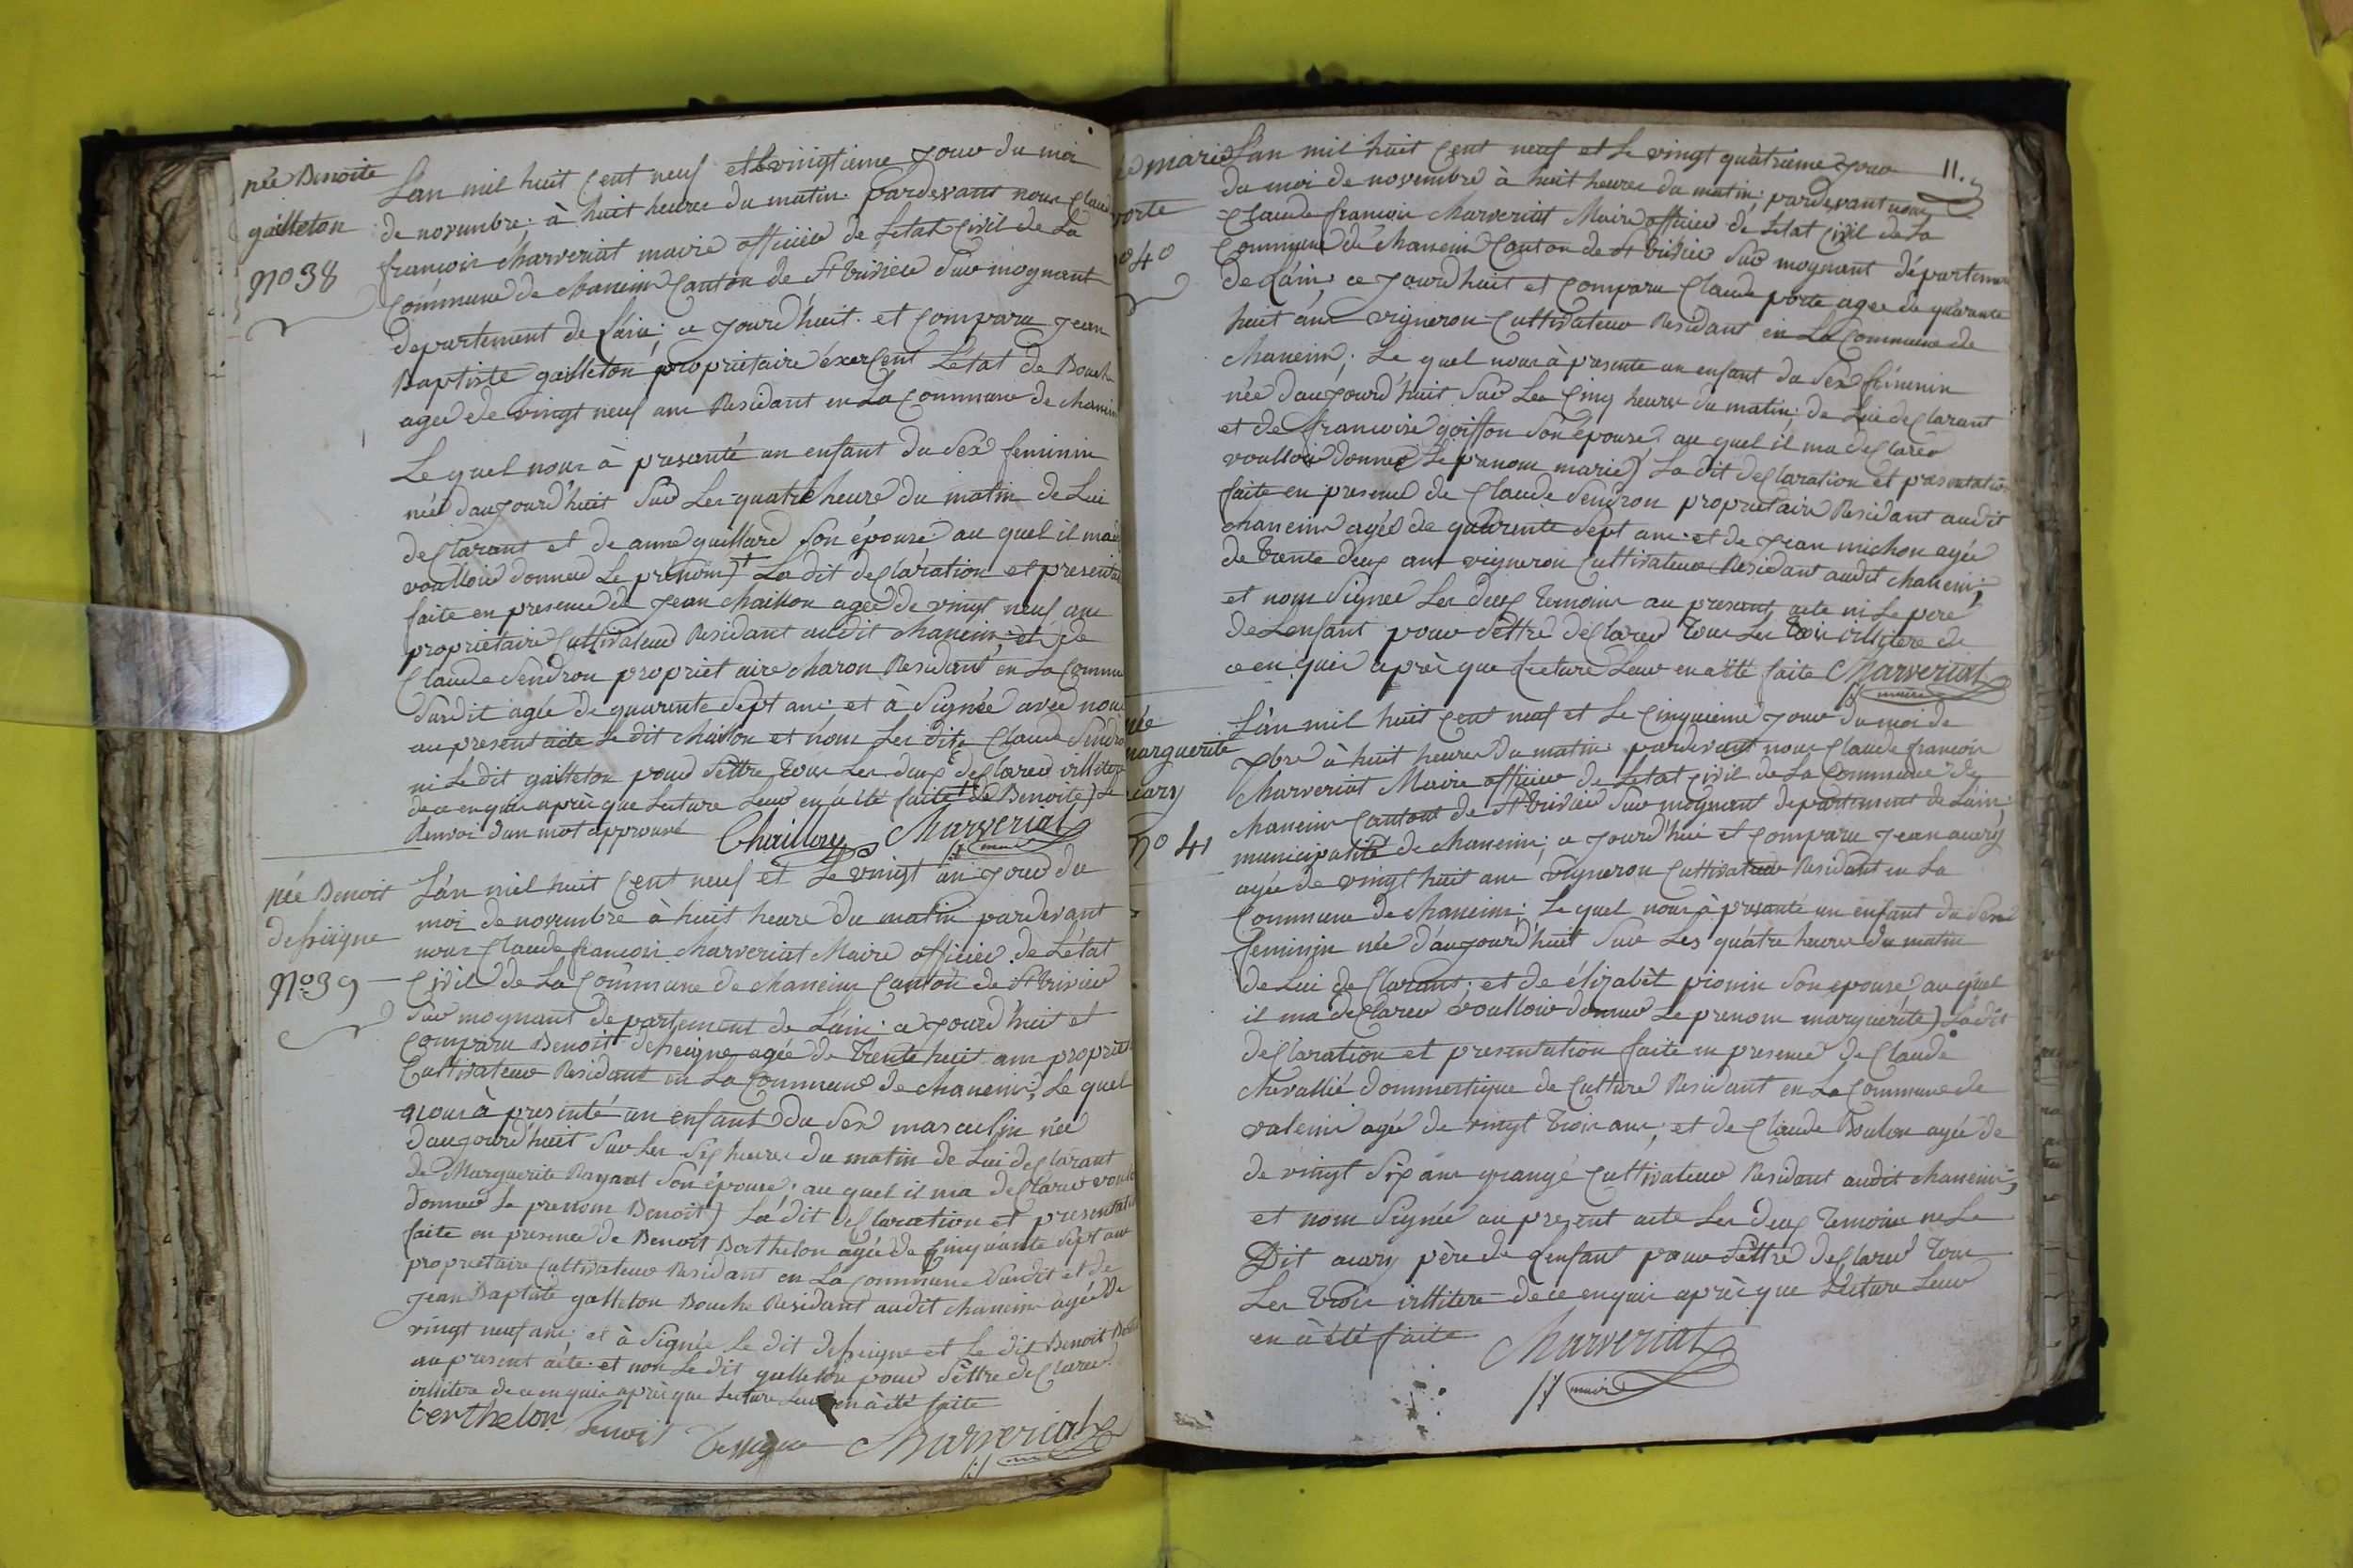 née Benoite
gailleton
No 38
L'an mil huit Cent neuf et Le vingtieme Jour du moi
de novembre; à huit heures du matin pardevant nous Claud
françois Charveriat maire officier de Létat Civil de La
Commune de Chaneins Canton de St trivier Sur mognant
departement de Lain; ce Jourd'huit et Comparu Jean
Baptiste gailleton propriétaire éxerCent Létat de Bouch
agee de vingt neuf ans Residant en La Commune de Chanein
Le quel nous à presenté un enfant du Sex feminin
née daujourd'huit Sur Les quatre heure du matin de Lui
deClarant et de anne guillard Son épouse au quel il ma
voulloir donner Le prenom)+ La dit deClaration et presenta
faite en presence de Jean Chaillon agee de vingt neuf ans
proprietaire Cultivateur Residant au dit Chaneins; et de
Claude Sendron propriet aire Charon Residant en La Commu
Susdit agée de quarente Sept ans et à Signée avec nous
au present acte Le dit Chaillon et nom Les dits Claude Sendro
ni Le dit gailleton pour Settre tous Les deux deClarer illitere
de ce enquis après que Lecture Leur en à été faite de Benoite) Le
Renvoi dun mot approuvé Chaillon Charveriat
maire
née Benoit
defseigne
No 39
L'an mil huit Cent neuf et Le vingt un Jour du
moi de novembre à huit heure du matin pardevant
nous Claude françois Charveriat Maire officier de Létat
Civil de La Commune de Chaneins Canton de St trivier
Sur mognant departement de Lain; ce Jourd'huit et
Comparu Benoit defseigne agée de trente huit ans propriet
Cultivateur Residant en La Commune de Chaneins, Le quel
nous à presenté un enfant du Sex masculin née
daujourd'huit Sur Les Six heures du matin de Lui deClarant
de Marguerite Sonépouse; au quel il ma deClarer voulo
donner Le prenom Benoit) La dit deClaration et presentat
faite en presence de Benoit Berthelon agée de Cinquante Sept ans
proprietaire Cultivateur Residant en La Commune Susdit et de
Jean Baptiste galleton Bouche Residant audit Chaneins agée de
vingt neuf ans; et à Signée Le dit defseigne et Le dit Benoit Bert
au present acte et non Le dit galleton pour Settre deClarer
illitere de ce enquis après que Lecture Leur en à été faite
berthelon Benoit Charveriat
maire
11.
marie
porte
40
L'an mil huit Cent neuf et Le vingt quatrieme Jour
du moi de novembre à huit heures du matin; pardevant nous
Claude françois Charveriat Maire officier de Létat Civil de La
Commune de Chaneins Canton de St trivier Sur mognant départemen
de Lain; ce Jourd'huit et Comparu Claude porte agee de quarante
huit ans vigneron Cultivateur Residant en La Commune de
Chaneins; Le quel nous à presente un enfant du Sex féminin
née daujourd'huit Sur Les Cinq heures du matin; de Lui deClarant
et de françoise goiffon Son épouse au quel il ma deClarer
voulloir donner Le prenom marie) La dit deClaration et presentatio
faite en presence de Claude Sendron proprietaire Residant audit
Chaneins agés de quarente Sept ans et de Jean michon agée
de trente deux ans vigneron Cultivateur Residant audit Chaneins;
et nom Signee Les deux temoins au present acte ni Le pere
de Lenfant pour Settre deClarer tous Les trois illitere de
ce enquis après que Lecture Leur en a été faite Charveriat
maire
née
marguerite
No 41
L'an mil huit Cent neuf et Le Cinquieme Jour du moi de
Xbre à huit heures du matin pardevant nous Claude françois
Charveriat Maire officier de Létat Civil de La Commune de
Chaneins Canton de St trivier Sur mognant departement de Lain;
municipalité de Chaneins; ce Jourd'hui et Comparu Jean
agée de vingt huit ans vigneron Cultivateur Residant en La
Commune de Chaneins; Le quel nous à presenté un enfant du Sex
feminin née d'aujourd'huit Sur Les quatre heures du matin
de Lui deClarant; et de élizabèt pionin Son epouse, au quel
il ma deClarer voulloir donner Le prenom marguerite) La dit
deClaration et presentation faite en presence de Claude
Chevallié dommestique de Culture Residant en La Commune de
valeins agée de vingt trois ans; et de Claude Boulon agée de
de vingt Six ans grangé Cultivateur Residant audit Chaneins;
et nom Signée au present acte Les deux temoins ne Le
Dit père de Lenfant pour Settre deClarer tous
Les trois illitere de ce enquis après que Lecture Leur
en à été faite Charveriat
maire